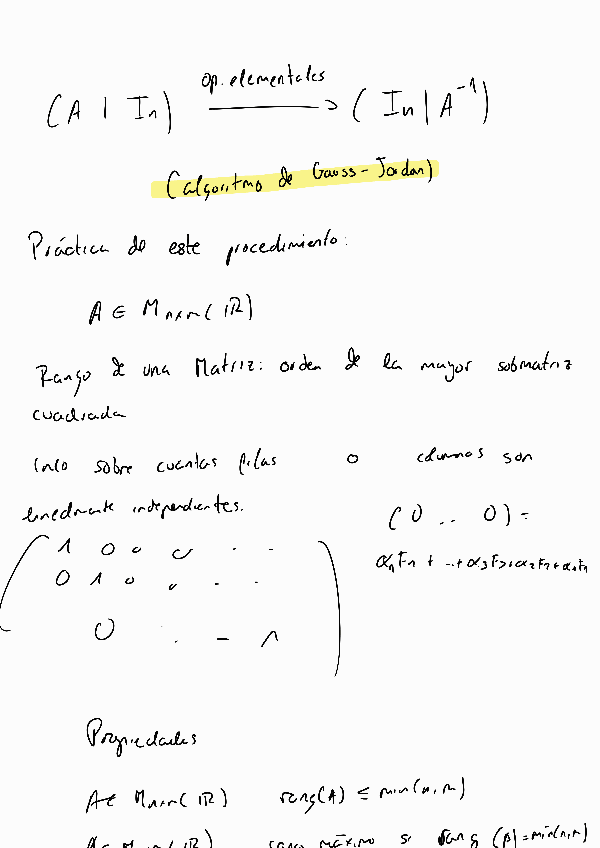 op. elementales
(A | In) ⟶ (In | A⁻¹)
(algoritmo de Gauss-Jordan)
Práctica de este procedimiento:
A ∈ Mnxm(ℝ)
Rango de una Matriz: orden de la mayor submatriz
cuadrada
Info sobre cuantas filas o columnas son
linealmente independientes.
(0 .. 0) =
α₁F₁ + ..+α₃F₃+α₂F₂+α₁F₁
1 0 0 0 . .
0 1 0 0 . .
0 . - 1
Propiedades
A ∈ Mnxm(ℝ) rang(A) ≤ min(n,m)
A ∈ Mnxm(ℝ) rang máximo si rang (A)=min(n,m)